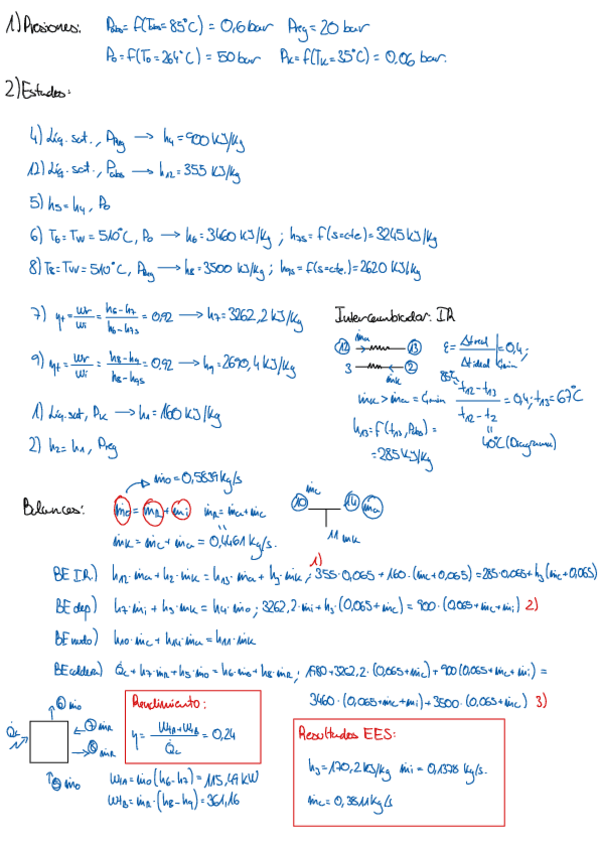 1) Presiones: Pabs = f(Tabs = 85°C) = 0,6 bar Preg = 20 bar
P0 = f(T0 = 264°C) = 50 bar PK = f(TK = 35°C) = 0,06 bar.
2) Estados:
4) Líq. sat., Preg → h4 = 900 KJ/Kg
12) Líq. sat., Pabs → h12 = 355 KJ/Kg
5) h5 = h4, P0
6) T6 = TW = 510°C, P0 → h6 = 3460 KJ/Kg ; h7s = f(s=cte) = 3245 KJ/Kg
8) T8 = TW = 510°C, Preg → h8 = 3500 KJ/Kg ; h9s = f(s=cte.) = 2620 KJ/Kg
7) ηt = wr/wi = (h6-h7)/(h6-h7s) = 0,92 → h7 = 3262,2 KJ/Kg
9) ηt = wr/wi = (h8-h9)/(h8-h9s) = 0,92 → h9 = 2690,4 KJ/Kg
1) Líq. sat, PK → h1 = 160 KJ/Kg
2) h2 = h1, Preg
Intercambiador: IR
ṁa
12 13
3 2
ṁK
ε = Δtreal/Δtideal Cmin = 0,4;
ṁK > ṁa = Cmin
85°C
(t12-t13)/(t12-t2) = 0,4; t13 = 67°C
40°C (Diagrama)
h13 = f(t13, Pabs) =
= 285 KJ/Kg
ṁ0 = 0,5839 Kg/s
Balances: ṁ0 = ṁR + ṁi ṁR = ṁa + ṁc
ṁK = ṁc + ṁa = 0,4461 Kg/s.
ṁc
10 14 ṁa
11 ṁK
BE IR) h12·ṁa + h2·ṁK = h13·ṁa + h3·ṁK ; 355·0,065 + 160·(ṁc+0,065) = 285·0,065 + h3(ṁc+0,065) 1)
BE dep) h7·ṁi + h3·ṁK = h4·ṁ0 ; 3262,2·ṁi + h3·(0,065+ṁc) = 900·(0,065+ṁc+ṁi) 2)
BE nudo) h10·ṁc + h14·ṁa = h11·ṁK
BE caldera) Q̇c + h7·ṁR + h5·ṁ0 = h6·ṁ0 + h8·ṁR ; 1980 + 3262,2·(0,065+ṁc) + 900(0,065+ṁc+ṁi) =
3460·(0,065+ṁc+ṁi) + 3500·(0,065+ṁc) 3)
6 ṁ0
Q̇c
7 ṁR
8 ṁR
5 ṁ0
Rendimiento:
η = (WtA+WtB)/Q̇c = 0,24
WtA = ṁ0(h6-h7) = 115,49 KW
WtB = ṁR·(h8-h9) = 361,16
Resultados EES:
h3 = 170,2 KJ/Kg ṁi = 0,1378 Kg/s.
ṁc = 0,3811 Kg/s